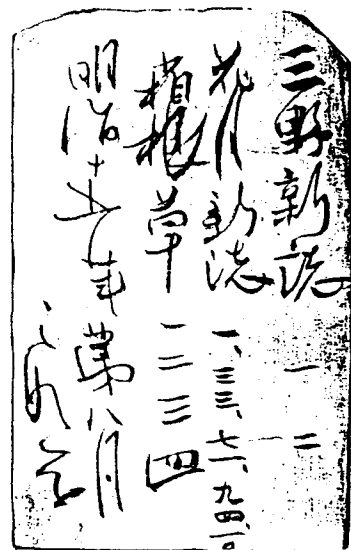 三野新誌 一 二
花月新誌 一、三三、七一、九四、一〇
草 一二三四
明治十五年第八月